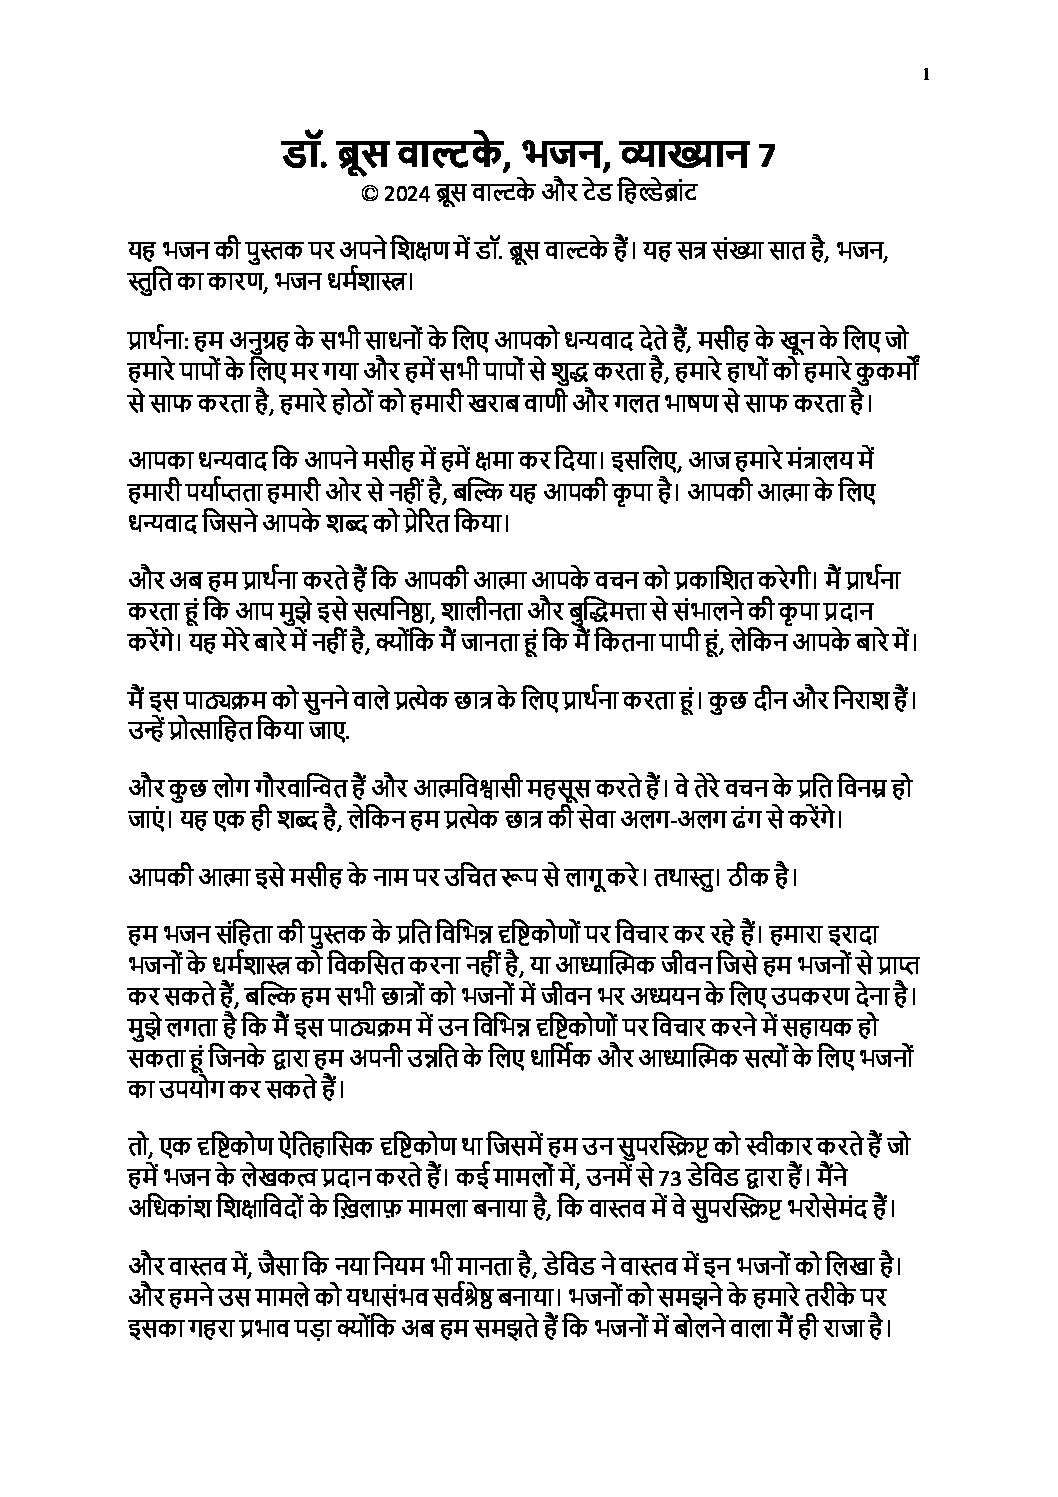 1
डॉ. ब्रूस वाल्टके, भजन, व्याख्यान 7
© 2024 ब्रूस वाल्टके और टेड हिल्डेब्रांट
यह भजन की पुस्तक पर अपने शिक्षण में डॉ. ब्रूस वाल्टके हैं। यह सत्र संख्या सात है, भजन,
स्तुति का कारण, भजन धर्मशास्त्र।
प्रार्थना: हम अनुग्रह के सभी साधनों के लिए आपको धन्यवाद देते हैं, मसीह के खून के लिए जो
हमारे पापों के लिए मर गया और हमें सभी पापों से शुद्ध करता है, हमारे हाथों को हमारे कुकर्मों
से साफ करता है, हमारे होठों को हमारी खराब वाणी और गलत भाषण से साफ करता है।
आपका धन्यवाद कि आपने मसीह में हमें क्षमा कर दिया। इसलिए, आज हमारे मंत्रालय में
हमारी पर्याप्तता हमारी ओर से नहीं है, बल्कि यह आपकी कृपा है। आपकी आत्मा के लिए
धन्यवाद जिसने आपके शब्द को प्रेरित किया।
और अब हम प्रार्थना करते हैं कि आपकी आत्मा आपके वचन को प्रकाशित करेगी। मैं प्रार्थना
करता हूं कि आप मुझे इसे सत्यनिष्ठा, शालीनता और बुद्धिमत्ता से संभालने की कृपा प्रदान
करेंगे। यह मेरे बारे में नहीं है, क्योंकि मैं जानता हूं कि मैं कितना पापी हूं, लेकिन आपके बारे में।
मैं इस पाठ्यक्रम को सुनने वाले प्रत्येक छात्र के लिए प्रार्थना करता हूं। कुछ दीन और निराश हैं।
उन्हें प्रोत्साहित किया जाए.
और कुछ लोग गौरवान्वित हैं और आत्मविश्वासी महसूस करते हैं। वे तेरे वचन के प्रति विनम्र हो
जाएं। यह एक ही शब्द है, लेकिन हम प्रत्येक छात्र की सेवा अलग-अलग ढंग से करेंगे।
आपकी आत्मा इसे मसीह के नाम पर उचित रूप से लागू करे। तथास्तु। ठीक है।
हम भजन संहिता की पुस्तक के प्रति विभिन्न दृष्टिकोणों पर विचार कर रहे हैं। हमारा इरादा
भजनों के धर्मशास्त्र को विकसित करना नहीं है, या आध्यात्मिक जीवन जिसे हम भजनों से प्राप्त
कर सकते हैं, बल्कि हम सभी छात्रों को भजनों में जीवन भर अध्ययन के लिए उपकरण देना है।
मुझे लगता है कि मैं इस पाठ्यक्रम में उन विभिन्न दृष्टिकोणों पर विचार करने में सहायक हो
सकता हूं जिनके द्वारा हम अपनी उन्नति के लिए धार्मिक और आध्यात्मिक सत्यों के लिए भजनों
का उपयोग कर सकते हैं।
तो, एक दृष्टिकोण ऐतिहासिक दृष्टिकोण था जिसमें हम उन सुपरस्क्रिप्ट को स्वीकार करते हैं जो
हमें भजन के लेखकत्व प्रदान करते हैं। कई मामलों में, उनमें से 73 डेविड द्वारा हैं। मैंने
अधिकांश शिक्षाविदों के ख़िलाफ़ मामला बनाया है, कि वास्तव में वे सुपरस्क्रिप्ट भरोसेमंद हैं।
और वास्तव में, जैसा कि नया नियम भी मानता है, डेविड ने वास्तव में इन भजनों को लिखा है।
और हमने उस मामले को यथासंभव सर्वश्रेष्ठ बनाया। भजनों को समझने के हमारे तरीके पर
इसका गहरा प्रभाव पड़ा क्योंकि अब हम समझते हैं कि भजनों में बोलने वाला मैं ही राजा है।